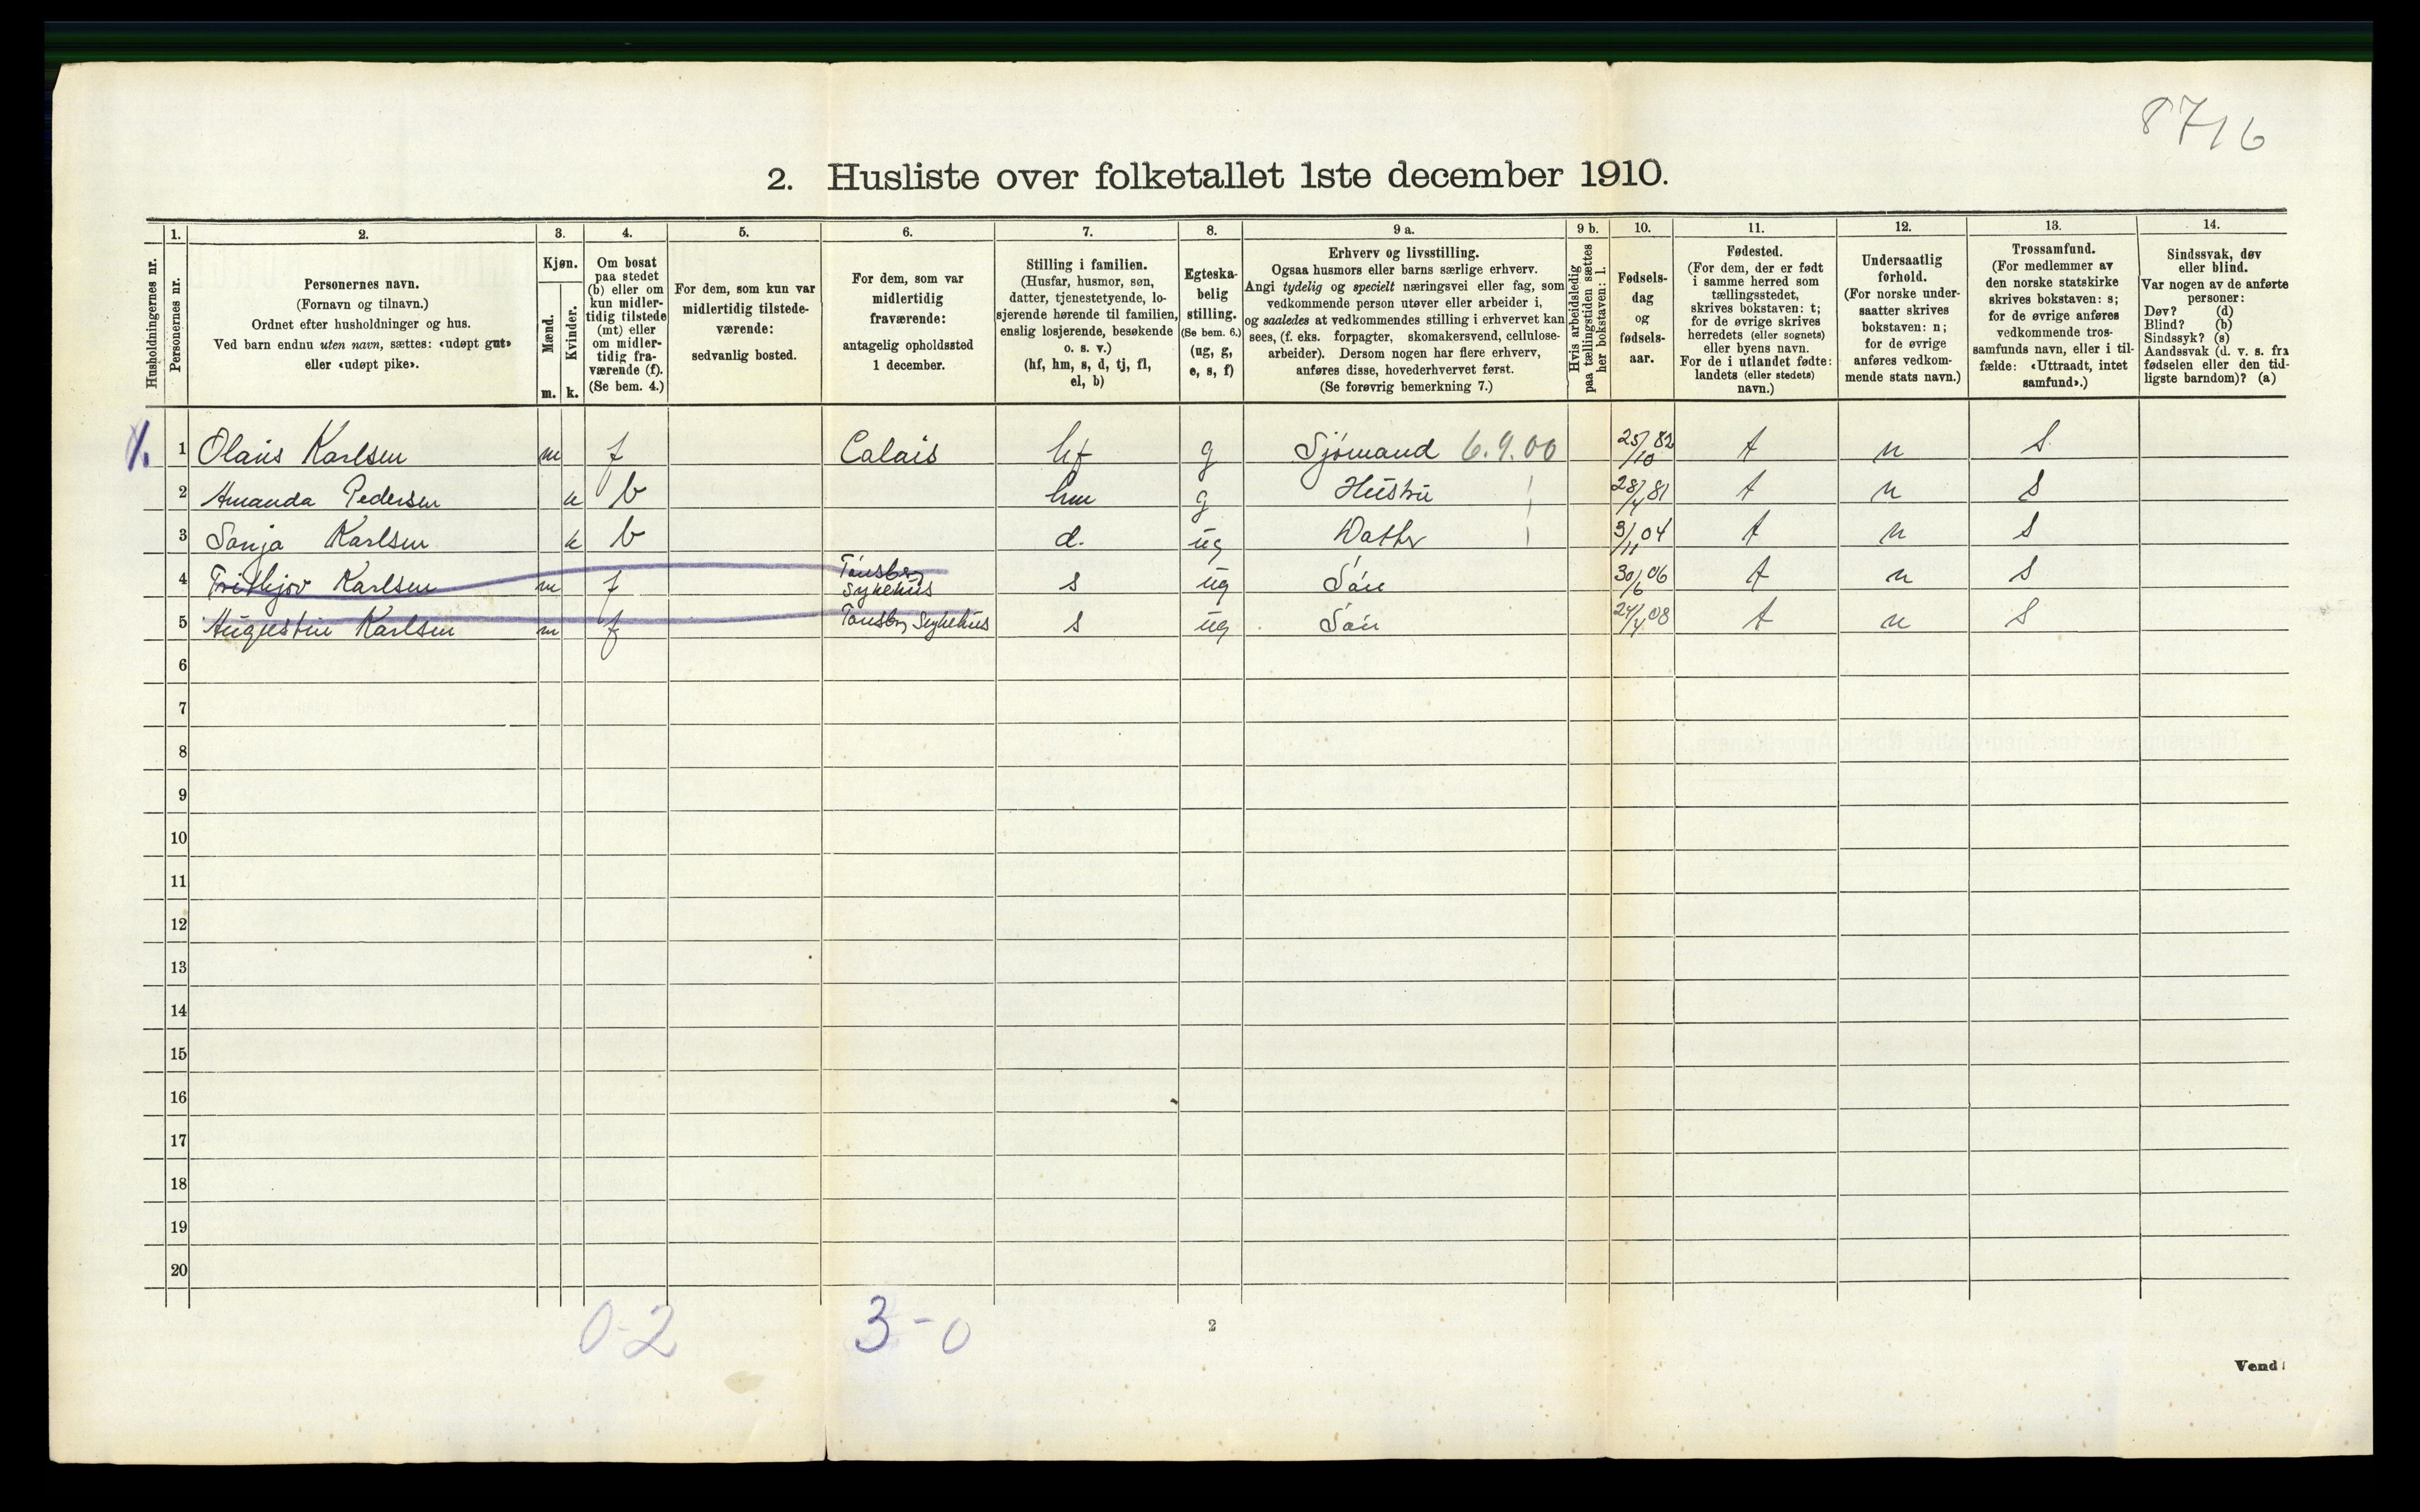 8716
2. Husliste over folketallet 1ste december 1910.
Husholdningernes nr.
1.
Personernes nr.
2.
Personernes navn.
(Fornavn og tilnavn.)
Ordnet efter husholdninger og hus.
Ved barn endnu uten navn, sættes: «udøpt gut»
eller «udøpt pike».
3.
Kjøn.
Mænd.
Kvinder.
m. k.
4.
Om bosat
paa stedet
(b) eller om
kun midler-
tidig tilstede
(mt) eller
om midler-
tidig fra-
værende (f).
(Se bem. 4.)
5.
For dem, som kun var
midlertidig tilstede-
værende:
sedvanlig bosted.
6.
For dem, som var
midlertidig
fraværende:
antagelig opholdssted
1 december.
7.
Stilling i familien.
(Husfar, husmor, søn,
datter, tjenestetyende, lo-
sjerende hørende til familien,
enslig losjerende, besøkende
o. s. v.)
(hf, hm, s, d, tj, fl,
el, b)
8.
Egteska-
belig
stilling.
(Se bem. 6.)
(ug, g,
e, s, f)
9 a.
Erhverv og livsstilling.
Ogsaa husmors eller barns særlige erhverv.
Angi tydelig og specielt næringsvei eller fag, som
vedkommende person utøver eller arbeider i,
og saaledes at vedkommendes stilling i erhvervet kan
sees, (f. eks. forpagter, skomakersvend, cellulose-
arbeider). Dersom nogen har flere erhverv,
anføres disse, hovederhvervet først.
(Se forøvrig bemerkning 7.)
9 b.
Hvis arbeidsledig
paa tællingstiden sættes
her bokstaven: l.
10.
Fødsels-
dag
og
fødsels-
aar.
11.
Fødested.
(For dem, der er født
i samme herred som
tællingsstedet,
skrives bokstaven: t;
for de øvrige skrives
herredets (eller sognets)
eller byens navn.
For de i utlandet fødte:
landets (eller stedets)
navn.)
12.
Undersaatlig
forhold.
(For norske under-
saatter skrives
bokstaven: n;
for de øvrige
anføres vedkom-
mende stats navn.)
13.
Trossamfund.
(For medlemmer av
den norske statskirke
skrives bokstaven: s;
for de øvrige anføres
vedkommende tros-
samfunds navn, eller i til-
fælde: «Uttraadt, intet
samfund».)
14.
Sindssvak, døv
eller blind.
Var nogen av de anførte
personer:
Døv? (d)
Blind? (b)
Sindssyk? (s)
Aandssvak (d. v. s. fra
fødselen eller den tid-
ligste barndom)? (a)
1 Olaus Karlsen m f Calais hf g Sjömand 6.9.00 25/10 82 t n S.
2 Amanda Pedersen k b hm g Hustru 28/4 81 t n S
3 Sonja Karlsen k b d. ug Datter 3/11 04 t n S
4 Frithjov Karlsen m f Tönsberg Sykehus s ug Sön 30/6 06 t n S
5 Augustin Karlsen m f Tönsbg Sykehus s ug Sön 24/4 08 t n S
6
7
8
9
10
11
12
13
14
15
16
17
18
19
20
0-2 3-0
2
Vend!